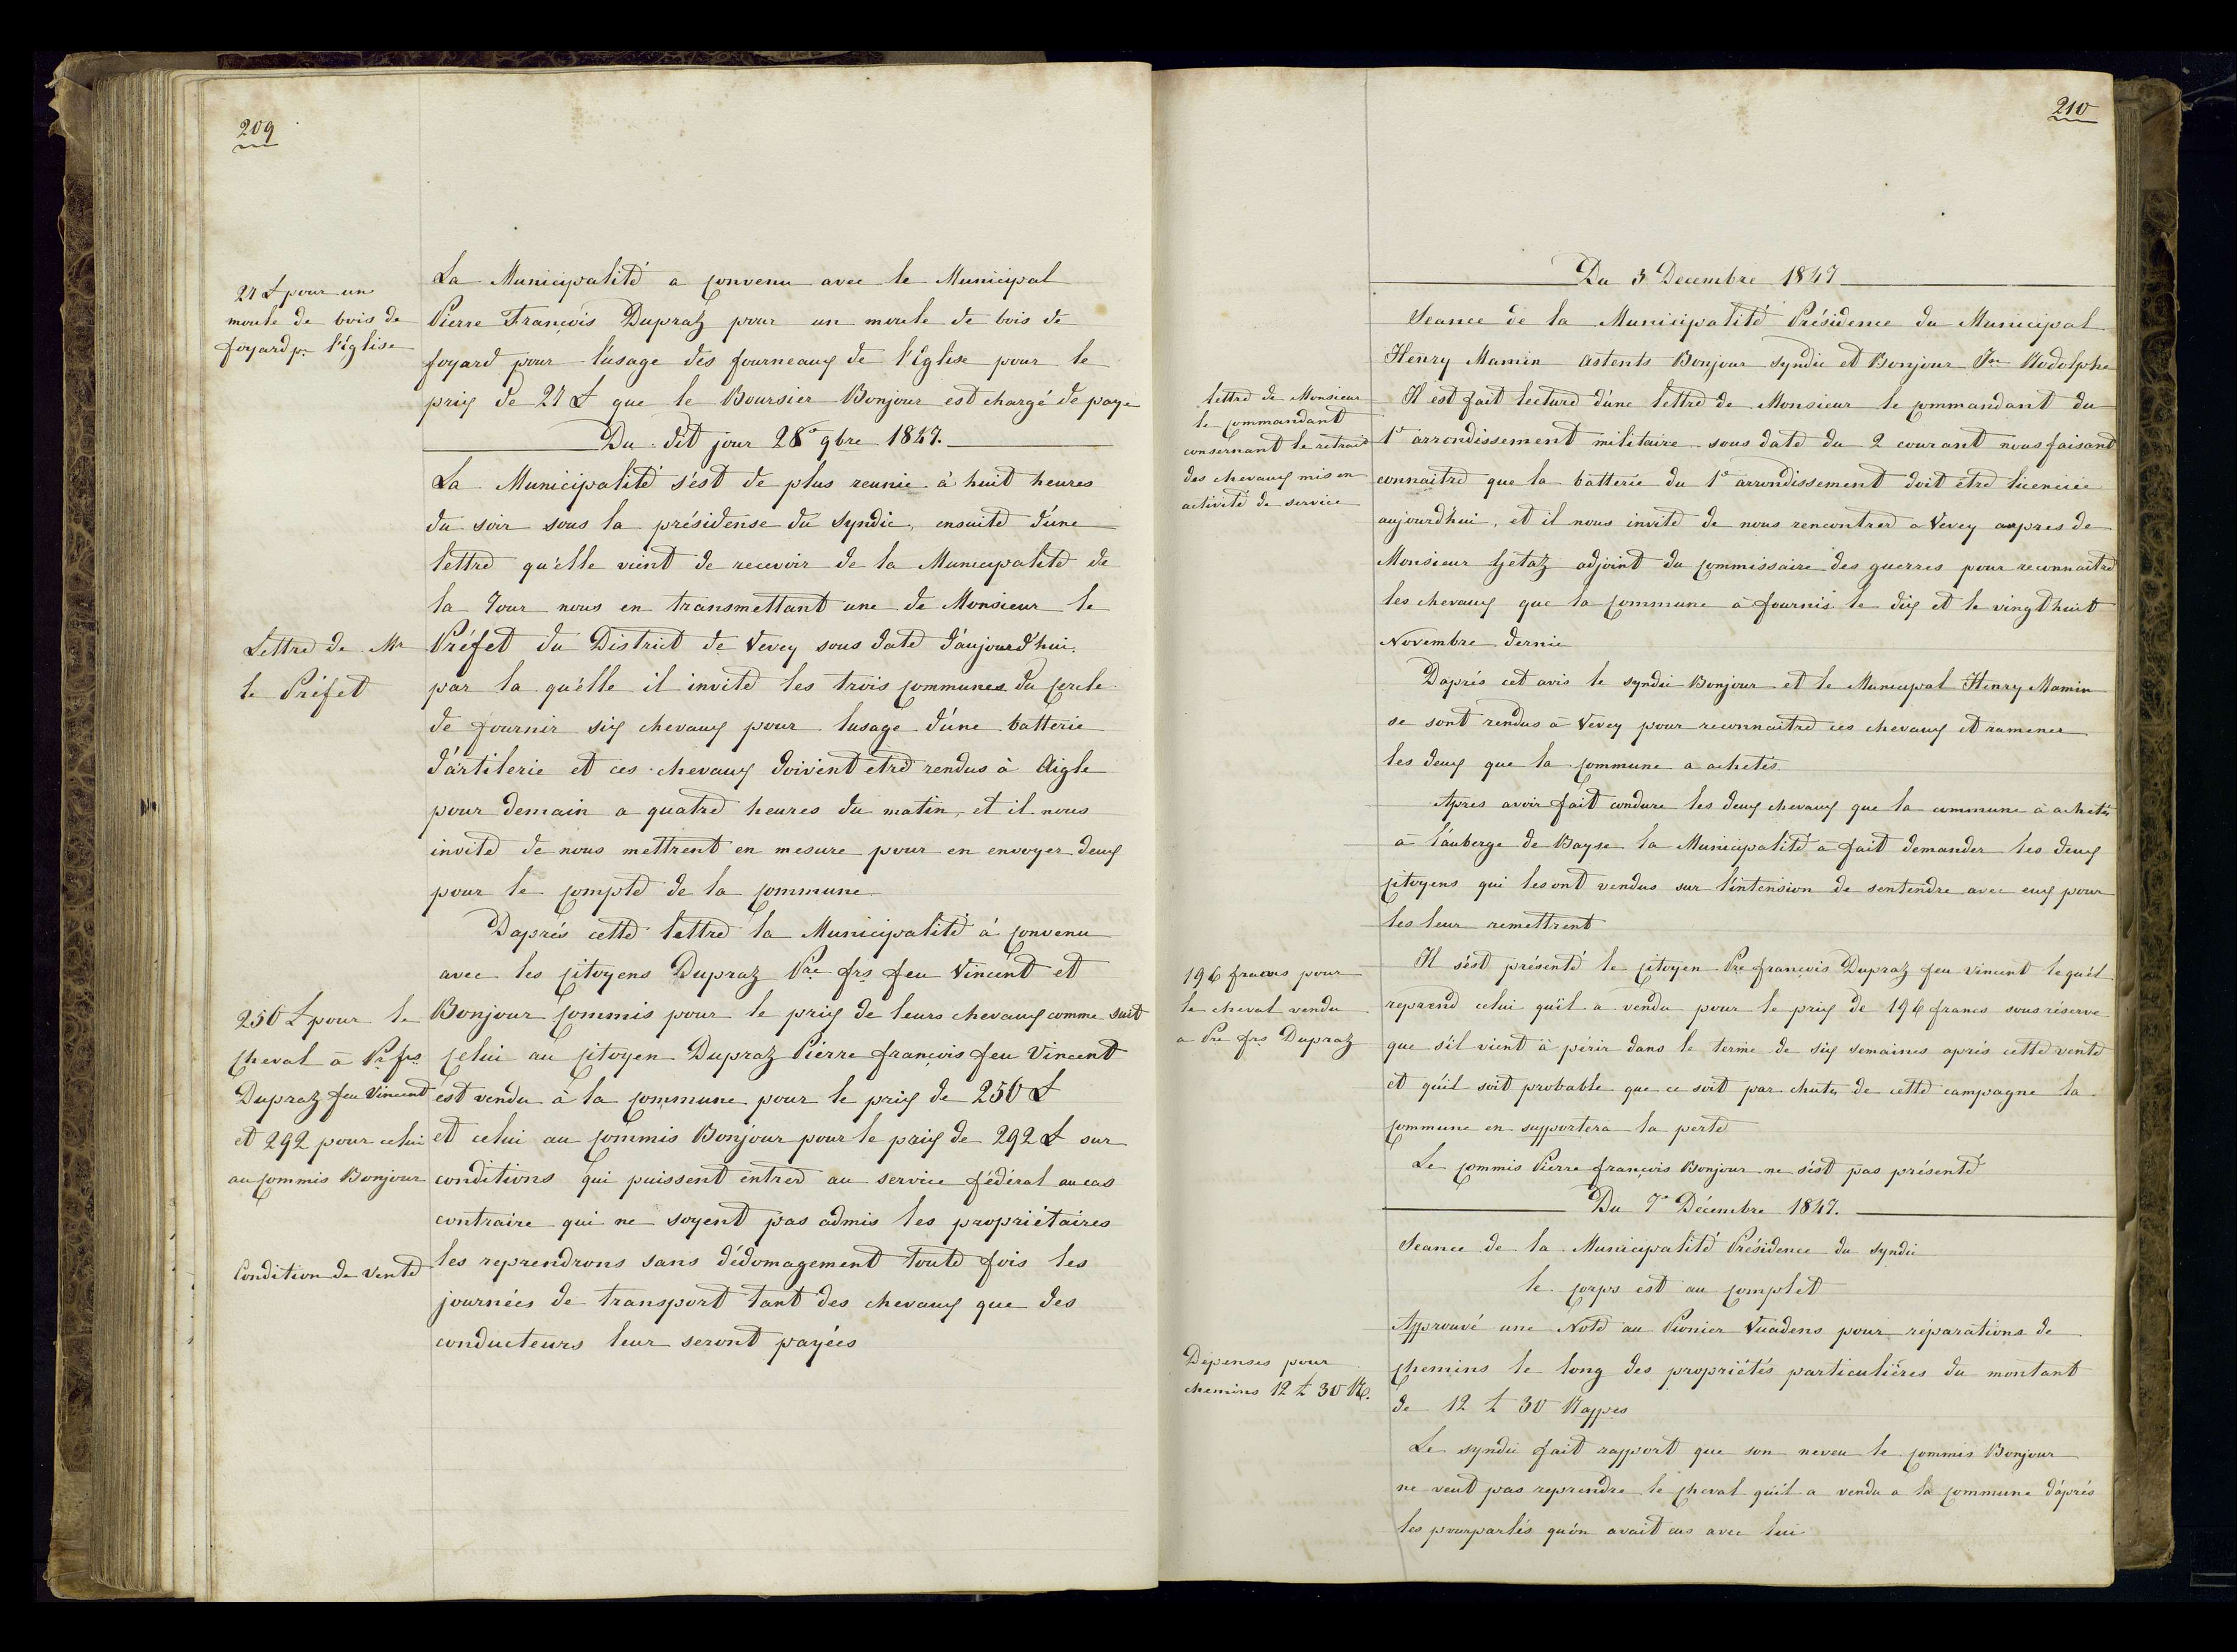 209
27 L pour un
moule de bois de
foyard pr l'église
La Municipalité a convenu avec le Municipal
Pierre François Dupraz pour un moule de bois de
foyard pour l'usage des fourneaux de l'Eglise pour le
prix de 27 L que le Boursier Bonjour est chargé de paye
Du dit jour 28e 9bre 1847.
La Municipalité s'est de plus reunie à huit heures
du soir sous la présidense du Syndic, ensuite d'une
lettre qu'elle vient de recevoir de la Municipalité de
la Tour nous en transmettant une de Monsieur le
Lettre de Mr
le Préfet
Préfet du District de Vevey sous date d'aujourd'hui,
par la qu'elle il invite les trois communes du Cercle
de fournir six chevaux pour lusage d'une batterie
d'artilerie et ces chevaux doivent etre rendus à Aigle
pour demain a quatre heures du matin, et il nous
invite de nous mettrent en mesure pour en envoyer deux
pour le compte de la commune
Daprés cette lettre la Municipalité à convenu
avec les citoyens Dupraz Pre frs feu Vincent et
250 L pour le
cheval à Pre frs
Dupraz feu Vincent
et 292 pour celui
au commis Bonjour
Bonjour commis pour le prix de leurs chevaux comme suit
celui au citoyen Dupraz Pierre françois feu Vincent
est vendu à la commune pour le prix de 250 L
et celui au commis Bonjour pour le prix de 292 L sur
conditions qui puissent entrer au service fédéral au cas
contraire qui ne soyent pas admis les propriétaires
Condition de vente
les reprendrons sans dédomagement toute fois les
journées de transport tant des chevaux que des
conducteurs leur seront payées
210
Du 3 Decembre 1847
Seance de la Municipalité Présidence du Municipal
Henry Mamin astents Bonjour Syndic et Bonjour Jn Rodolphe
lettre de Monsieur
le commandant
consernant le retrait
des chevaux mis en
activité de service
Il est fait lecture d'une lettre de Monsieur le commandant du
1e arrondissement militaire sous date du 2 courant nous faisant
connaitre que la batterie du 1e arrondissement doit etre licenciée
aujourd'hui, et il nous invite de nous rencontrer a Vevey aupres de
Monsieur Getaz adjoint du commissaire des guerres pour reconnaître
les chevaux que la commune à fournis le dix et le vingt huit
Novembre dernie
Daprés cet avis le syndic Bonjour et le Municipal Henry Mamin
se sont rendus à Vevey pour reconnaitre ces chevaux et ramener
les deux que la commune a achetés
Apres avoir fait condure les deux chevaux que la commune à achetés
à l'auberge de Bayse la Municipalité à fait demander les deux
citoyens qui les ont vendus sur l'intension de sentendre avec eux pour
les leur remettrent
196 francs pour
le cheval vendu
a Pre frs Dupraz
Il s'est présenté le citoyen Pre françois Dupraz feu Vincent lequel
reprend celui qu'il a vendu pour le prix de 196 francs sous réserve
que s'il vient à périr dans le terme de six semaines aprés cette vente
et qu'il soit probable que ce soit par chutes de cette campagne la
commune en supportera la perte
Le commis Pierre françois Bonjour ne s'est pas présenté
Du 7e Décembre 1847.
Seance de la Municipalité Présidence du Syndic
le corps est au complet
Approuvé une Note au Pionier Vuadens pour réparations de
Dépenses pour
chemins 12 L 30 R.
chemins le long des propriétés particulières du montant
de 12 L 30 Rappes
Le syndic fait rapport que son neveu le commis Bonjour
ne veut pas reprendre le cheval qu'il a vendu a la commune d'aprés
les pourparlés qu'on avait eus avec lui